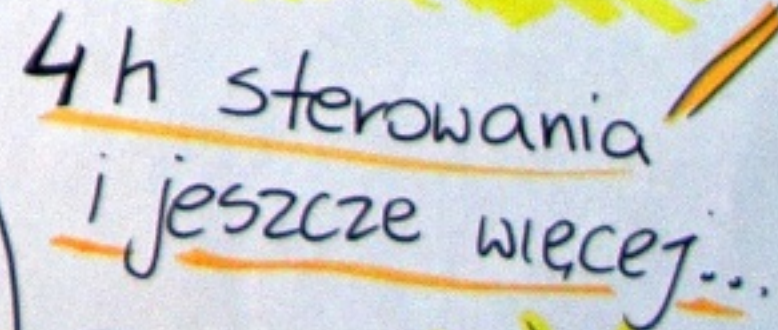 4h sterowania
i jeszcze więcej...